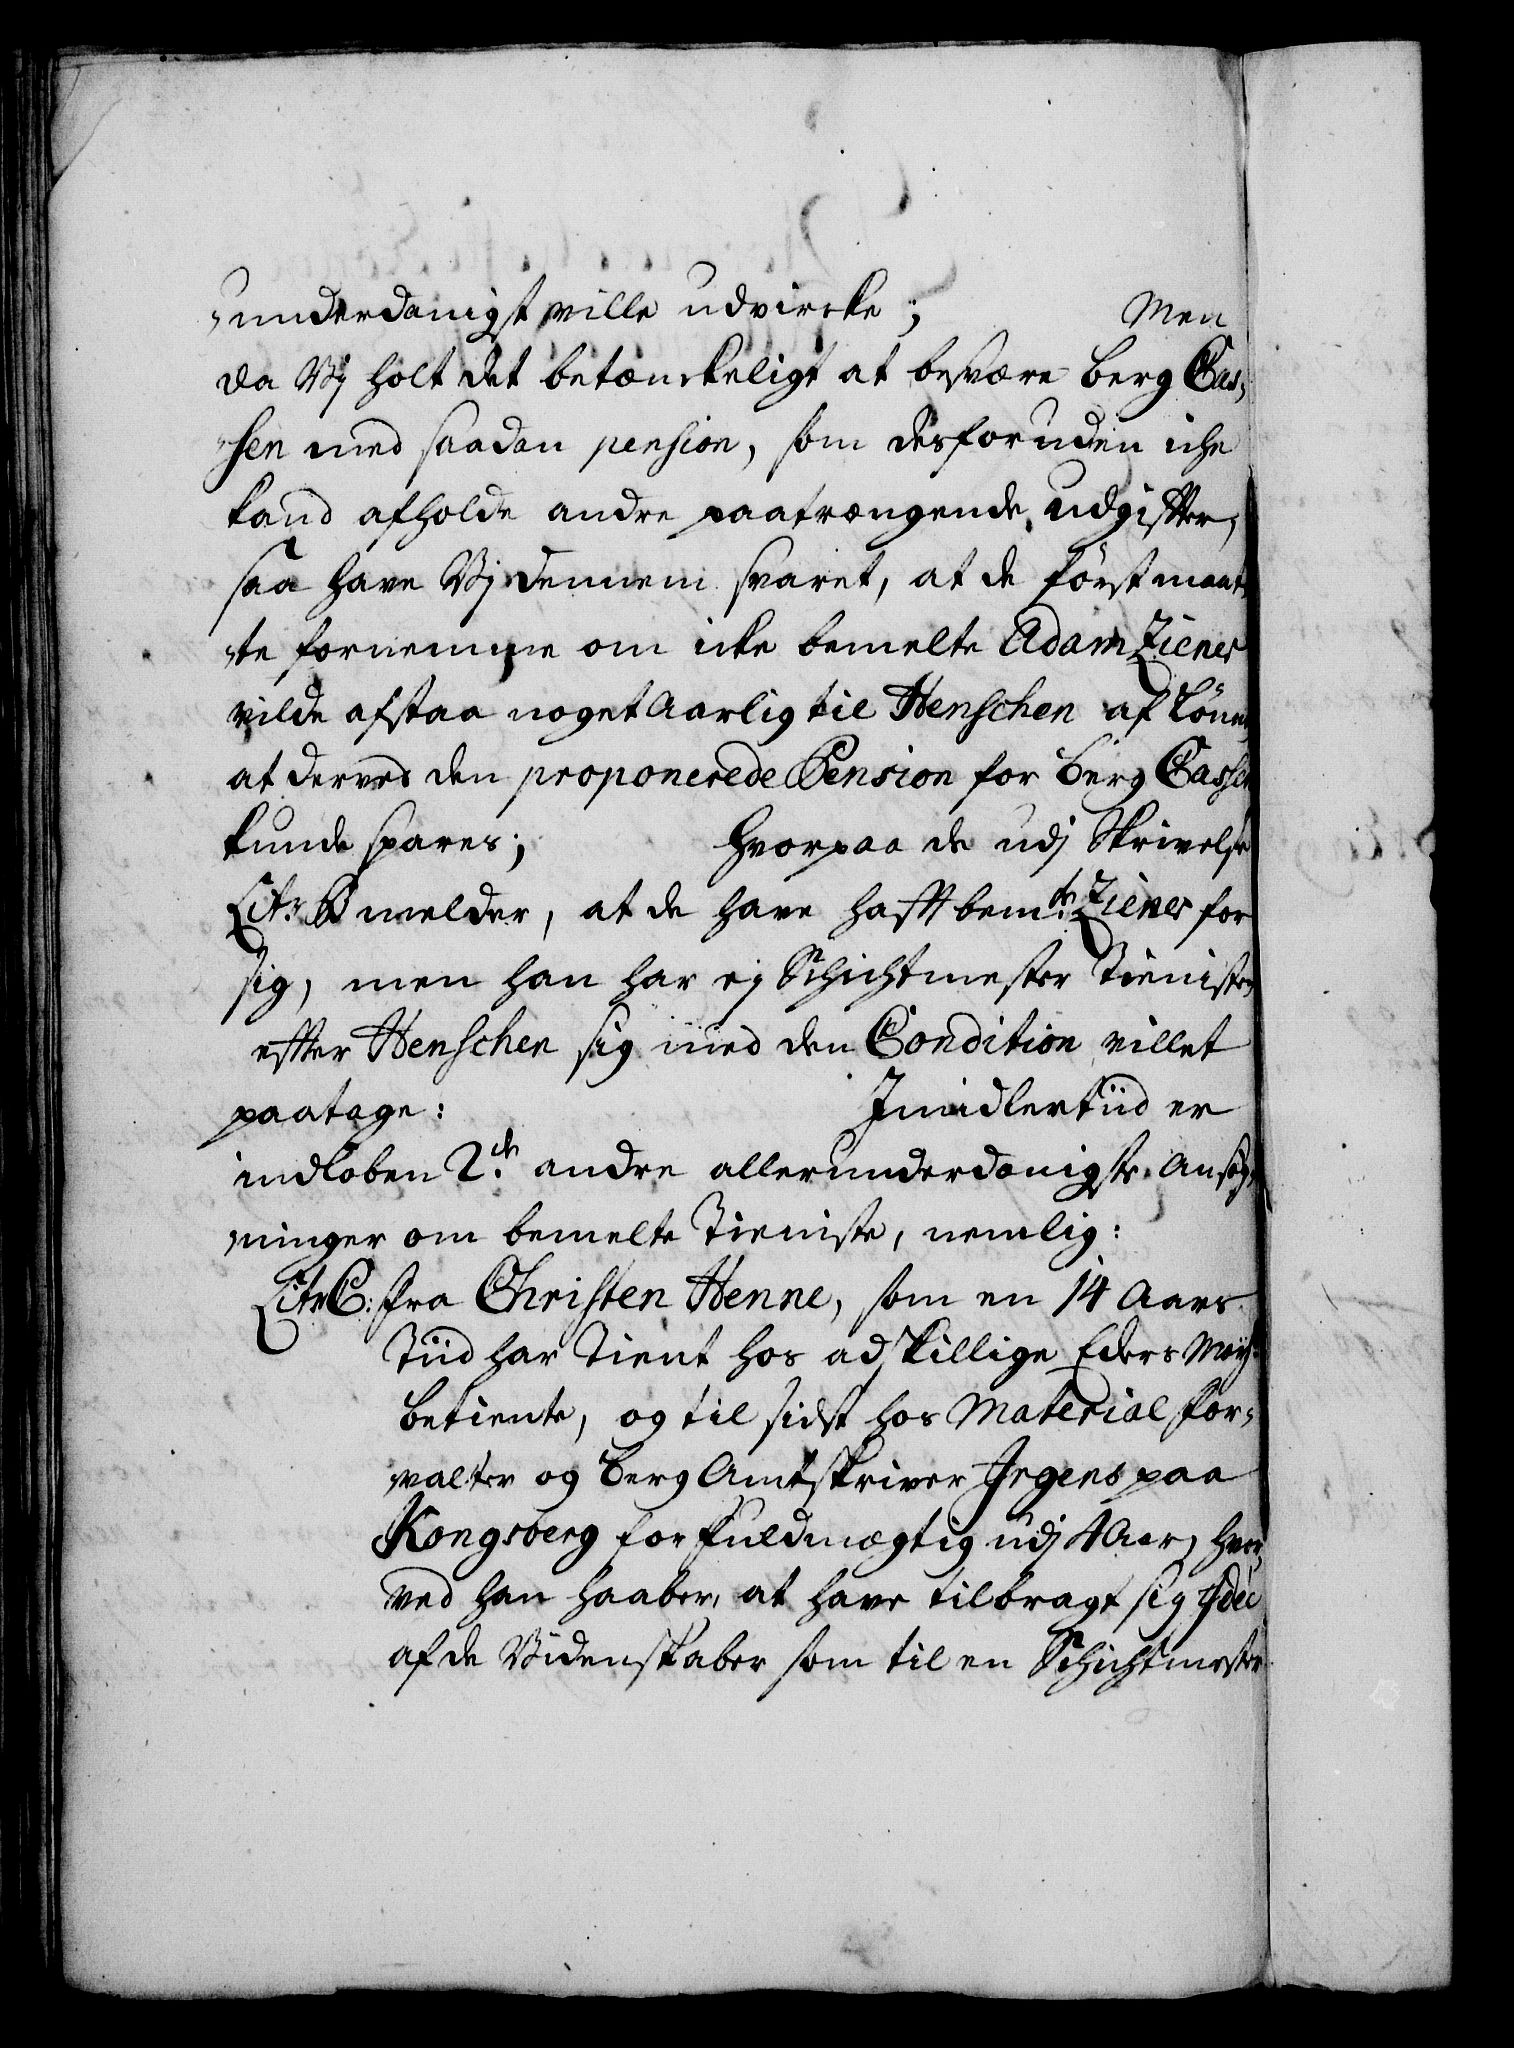 -underdanigst ville udvircke; Men
da Vj holt det betænckeligt at besvære Berg Cas-
-sen med saadan pension, som desforuden icke
kand afholde andre paatrængende udgiffter,
saa have Vj dennem svaret, at de først maat-
-te fornemme om icke bemelte Adam Ziener
vilde afstaa noget Aarlig til Henschen af Lönen,
at derved den proponerede Pension for Berg Cassen
kunde spares; Hvorpaa de udj Skrivelse
Litr: B melder, at de have hafft bemte Ziener for
sig, men han har ej Schichtmester Tieniste,
effter Henschen sig med den Condition villet
paatage: Jmidlertiid er
indloben 2de andre allerunderdanigste Ansög-
-ninger om bemelte Tieniste, nemlig:
Litr C: fra Christen Henne, som en 14 Aars
Tiid har Tient hos adskillige Eders May:
betiente, og til sidst hos Material for-
-valter og Berg Amtskriver Jrgens paa
Kongsberg for fuldmægtig udj 4 Aar, hvor-
ved han haaber, at have tilbragt sig Jdée
af de Videnskaber som til en Schichtmester